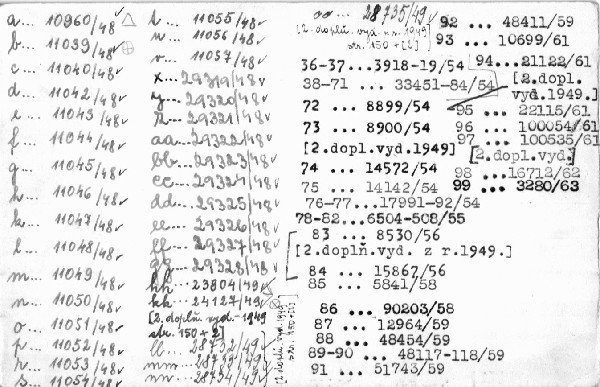 a... 10960/48
b... 11039/48
c... 11040/48
d... 11042/48
e... 11043/48
f... 11044/48
g... 11045/48
h... 11046/48
k... 11047/48
l... 11048/48
m... 11049/48
n... 11050/48
o... 11051/48
p... 11052/48
r... 11053/48
s... 11054/48
t... 11055/48
u... 11056/48
v... 11057/48
x... 29319/48
y... 29320/48
z... 29321/48
aa... 29322/48
bb... 29323/48
cc... 29324/48
dd... 29325/48
ee... 29326/48
ff... 29327/48
gg... 29328/48
hh... 23804/49
kk... 24127/49
[2. doplň vyd. 1949
str. 150 + 2]
ll... 28732/49
mm... 28733/49
nn... 28734/49
oo... 28735/49
36-37...3918-19/54
38-71 ... 33451-84/54
72 ... 8899/54
73 ... 8900/54
[2.dopl.vyd.1949]
74 ... 14572/54
75 ... 14142/54
76-77...17991-92/54
78-82...6504-508/55
83 ... 8530/56
[2.doplň.vyd. z r.1949.]
84 ... 15867/56
85 ... 5841/58
86 ... 90203/58
87 ... 12964/59
88 ... 48454/59
89-90 ... 48117-118/59
91 ... 51743/59
92 ... 48411/59
93 ... 10699/61
94...21122/61
[2.dopl.
vyd.1949.]
95 ... 22115/61
96 ... 100054/61
97 ... 100535/61
[2.dopl.vyd.]
98 ... 16712/62
99 ... 3280/63